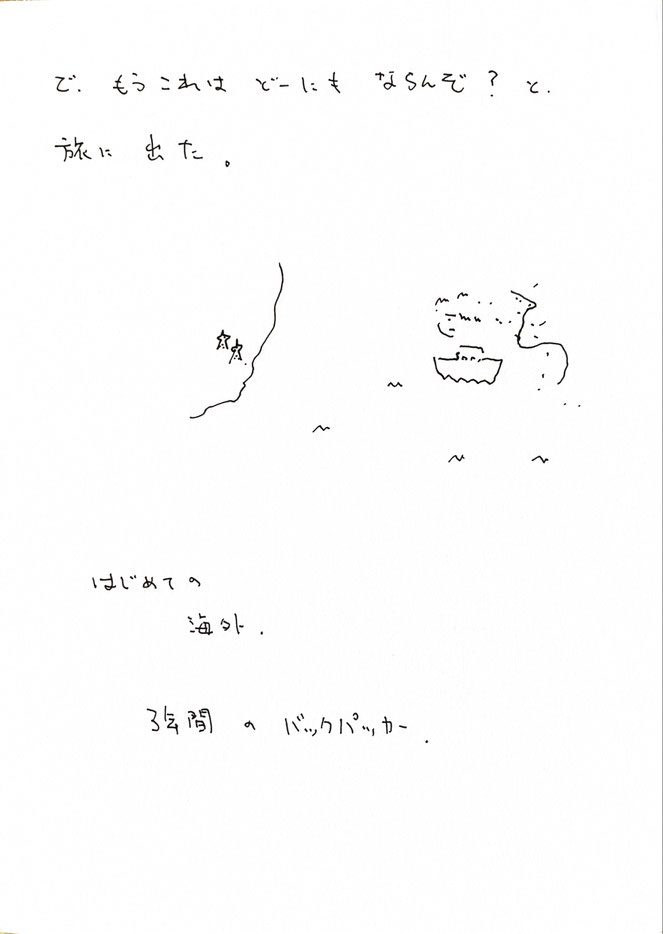 で、もうこれは どーにも ならんぞ？ と、
旅に 出た。
はじめての
海外．
3年間 の バックパッカー．